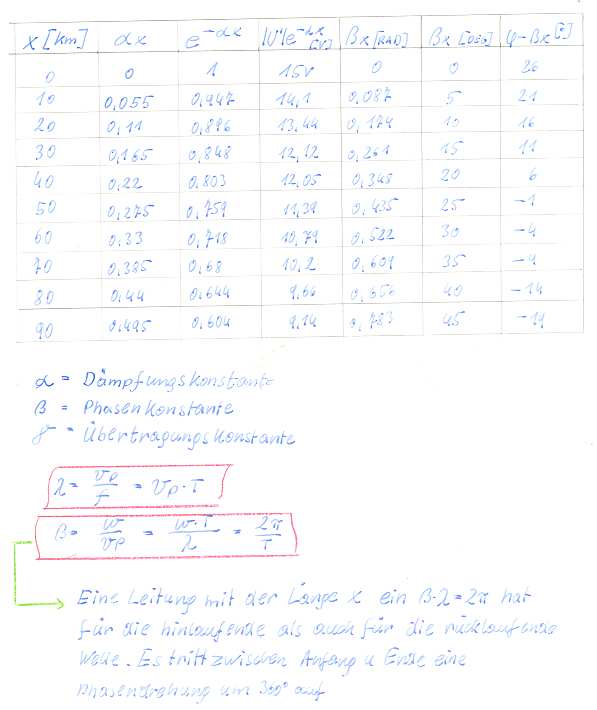 x [km] αx e^-αx |U''|e^-αx [V] βx [RAD] βx [DEG] φ-βx [°]
0 0 1 15V 0 0 26
10 0,055 0,947 14,1 0,087 5 21
20 0,11 0,896 13,44 0,174 10 16
30 0,165 0,848 12,12 0,261 15 11
40 0,22 0,803 12,05 0,348 20 6
50 0,275 0,759 11,39 0,435 25 -1
60 0,33 0,718 10,79 0,522 30 -4
70 0,385 0,68 10,2 0,609 35 -9
80 0,44 0,644 9,66 0,656 40 -14
90 0,495 0,604 9,14 0,783 45 -19
α = Dämpfungskonstante
β = Phasenkonstante
γ = Übertragungskonstante
λ = vp/f = vp · T
β = w/vp = w·T/λ = 2π/T
Eine Leitung mit der Länge x ein β·λ=2π hat
für die hinlaufende als auch für die rücklaufende
Welle. Es tritt zwischen Anfang u Ende eine
Phasendrehung um 360° auf